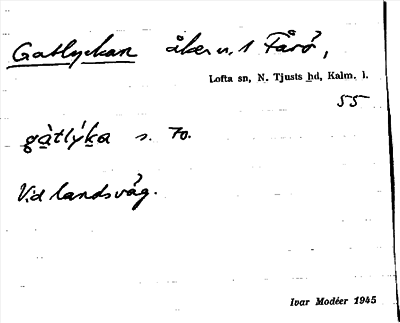 Gatlyckan åker n. 1 Fårö,
Lofta sn, N. Tjusts hd, Kalm. l.
55
gàtlýka s. 70.
Vid landsväg.
Ivar Modéer 1945